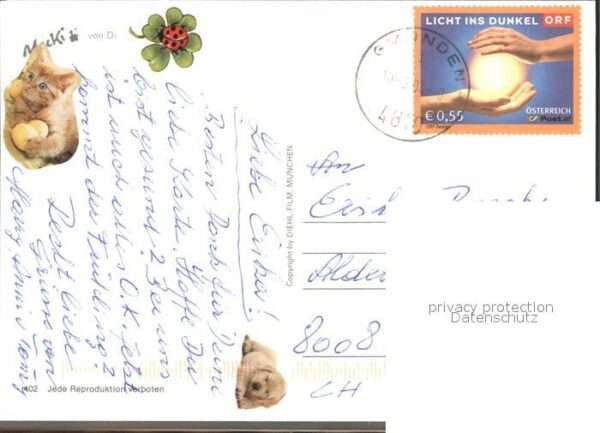 Mucki
von Di
Liebe Erika!
Besten Dank für Deine
liebe Karte. Hoffe Du
bist gesund? Bei uns
ist auch alles O.K. Jetzt
kommt der Frühling?
Recht liebe
Grüsse von
LICHT INS DUNKEL ORF
€ 0,55
ÖSTERREICH
Post.at
GMUNDEN
An
8008
CH
Copyright by DIEHL FILM, MÜNCHEN
privacy protection
Datenschutz
Jede Reproduktion verboten